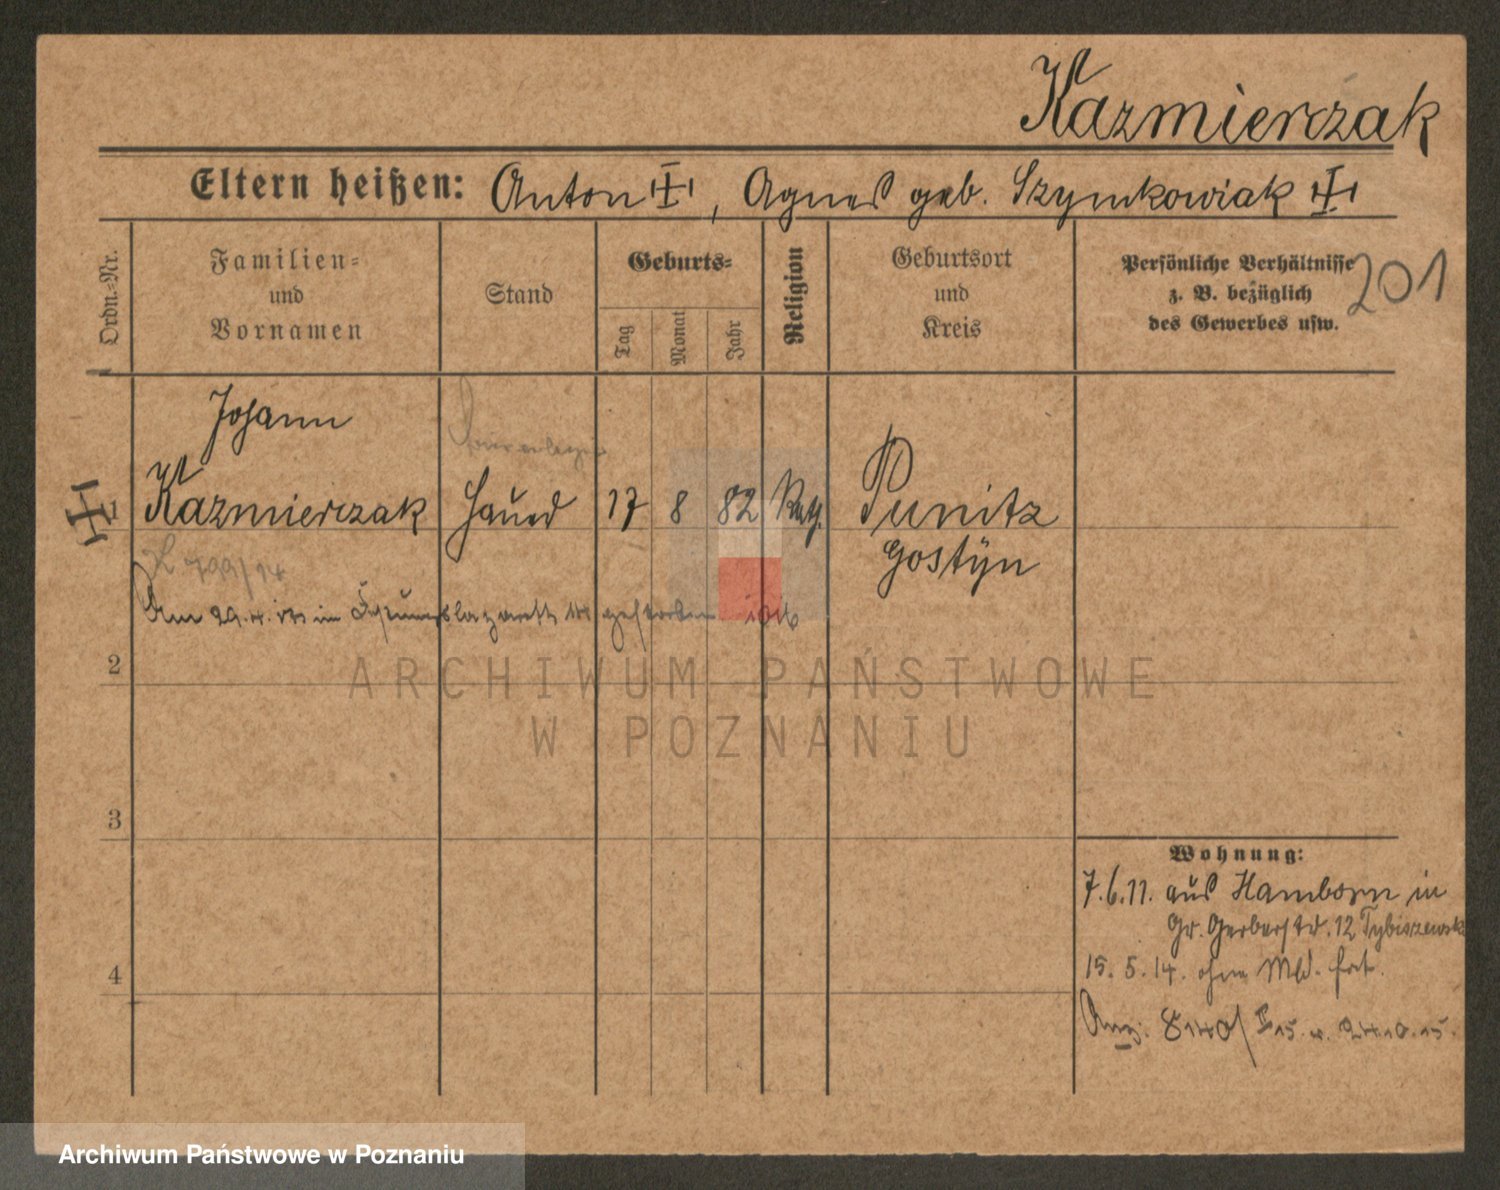 Kazmierczak
Eltern heißen: Anton, Agnes geb. Szymkowiak
Ordn.-Nr.
Familien-
und
Vornamen
Stand
Geburts-
Tag
Monat
Jahr
Religion
Geburtsort
und
Kreis
Persönliche Verhältnisse
z. B. bezüglich
des Gewerbes usw.
201
Johann
1 Kazmierczak 17 8 82 Kath. Punitz
Gostÿn
Am 29.4. im gestorben
2
ARCHIWUM PAŃSTWOWE
W POZNANIU
3
Wohnung:
7.6.11. aus Hamborn in
Gr. Gerberstr. 12
4
15. 5. 14. ohne Mld. fort.
Anz. 8140/
Archiwum Państwowe w Poznaniu